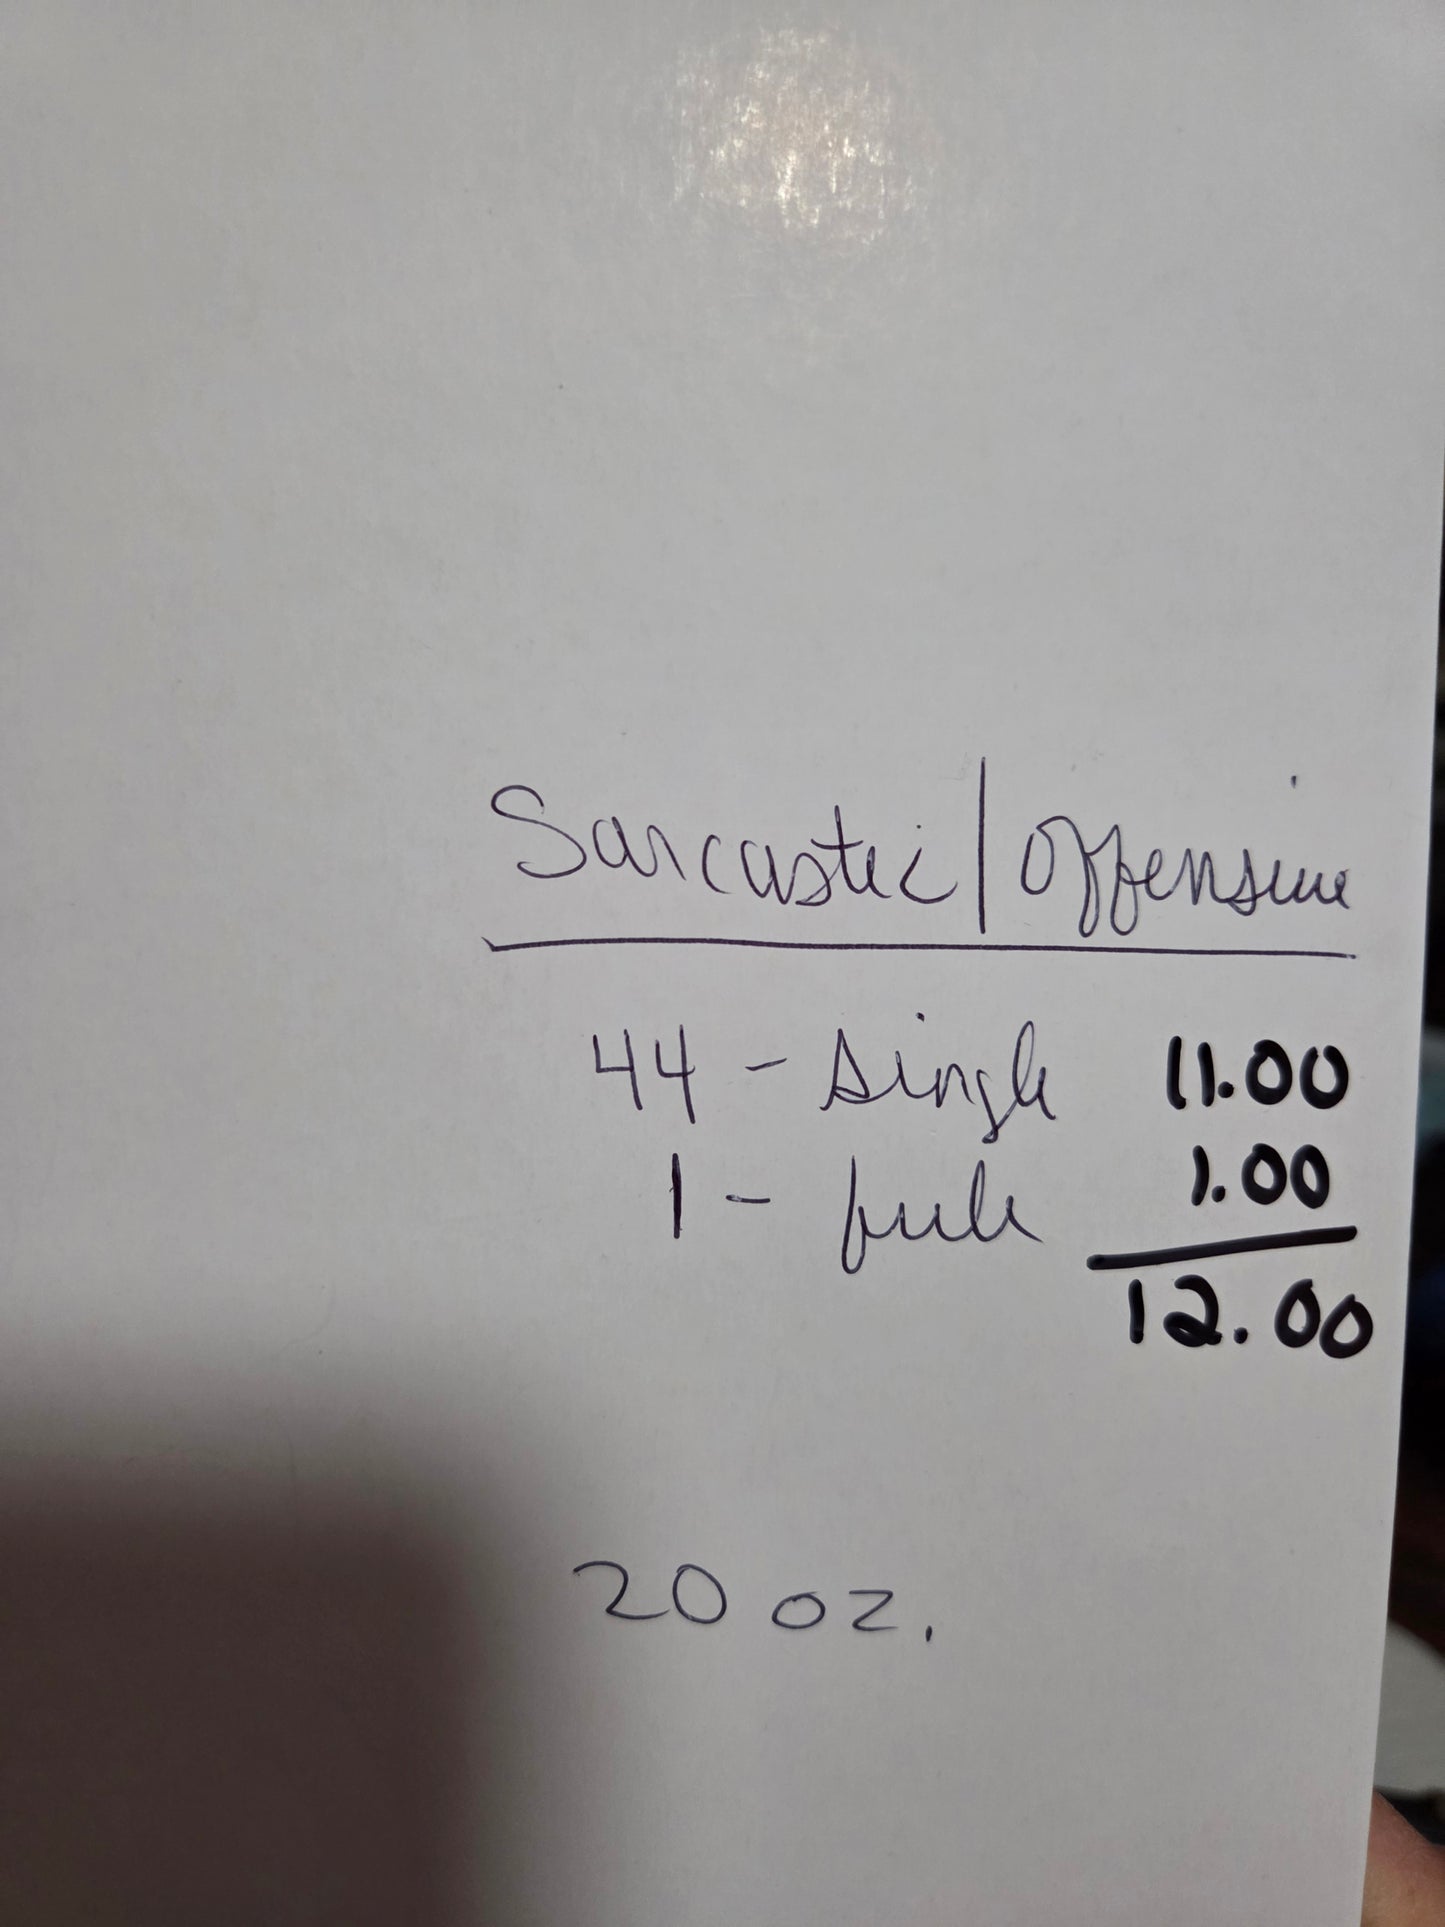 Sarcastic/Offensive
44 - single 11.00
1 - full 1.00
12.00
20 oz.